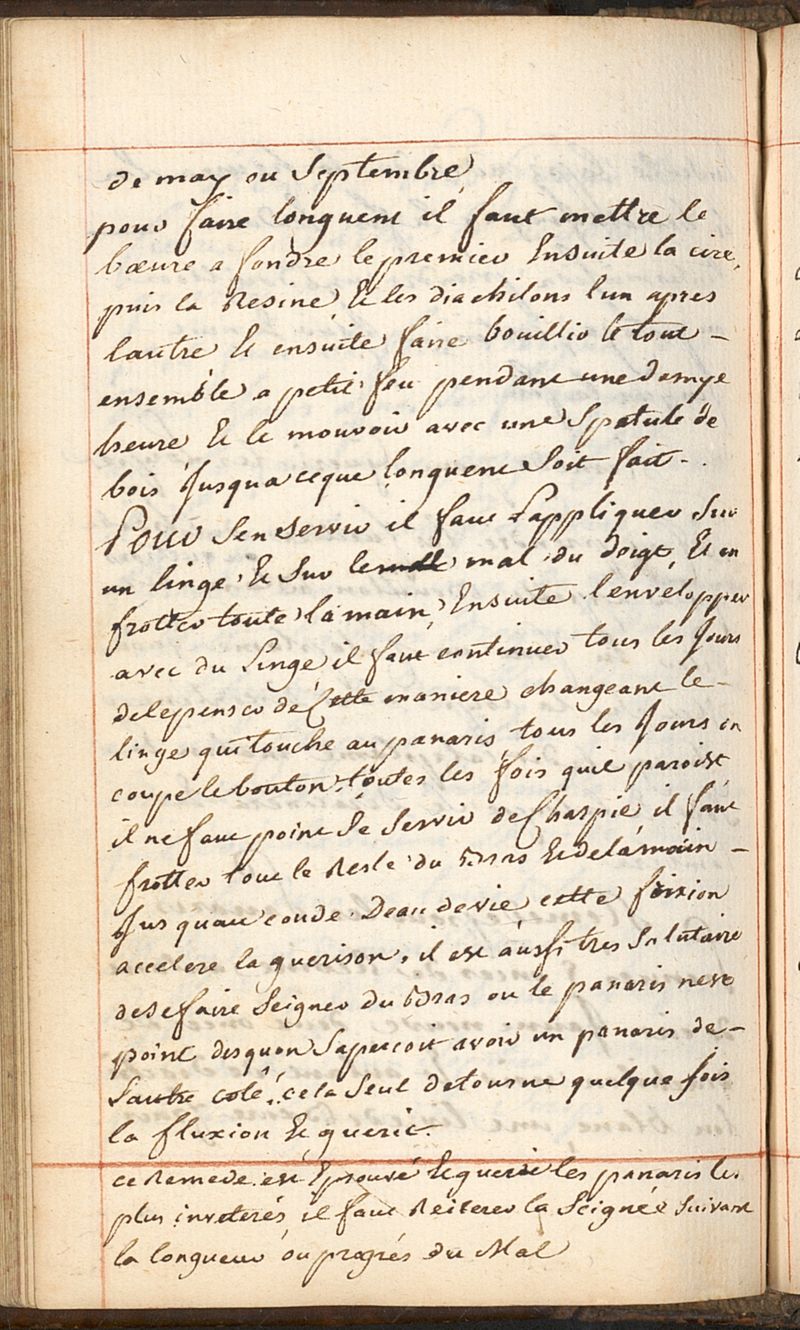 de may ou Septembre
pour faire longuent il faut mettre le
bœure a fondre le premier Ensuite la cire,
puis la Resine, Et les diachilons lun apres
lautre Et ensuite faire bouillir le tout –
ensemble a petit feu pendant une demye
heure Et le mouvoir avec une Spatule de
bois Jusqua ceque longuent Soit fait.
Pour Sen servir il faut Lappliquer Sur
un linge Et Sur le mal du doigt, Et en
frotter toute la main, Ensuite lenvelopper
avec du Linge il faut continuer tous les Jours
delepenser de Cette maniere changeant le –
linge qui touche au panaris tous les Jours on
coupe le bouton toutes les fois quil paroist
il ne faut point Se Servir de Charpie il faut
frotter tout le Reste du Bras Et de la main –
Jusquau coude Deau de vie cette frixion
accelere la guerison, il est aussi tres Salutaire
de se faire Seigner du Bras ou le panaris nest
point desquon Sapercoit avoir un panaris de –
Lautre coté, cela Seul detourne quelque fois
la fluxion Et guerit.
ce Remede est Eprouvé Et guerit les panaris les
plus inveterés, il faut Reiterer la Seignée Suivant
la longueur ou progrés du Mal